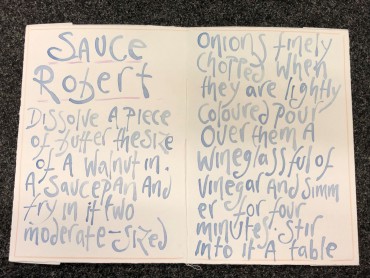 SAUCE
Robert
Dissolve A piece
of butter the size
of A walnut in
A saucepan and
fry in it two
moderate-sized
Onions finely
chopped when
they are lightly
coloured pour
over them A
wineglassful of
vinegar and simm
er for four
minutes. Stir
into it A table